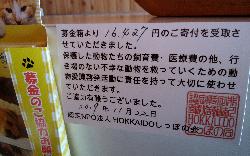 募金箱より 16,427円のご寄付を受取さ
せていただきました。
保護した動物たちの飼育費・医療費の他、行
き場のない不幸な動物を救っていくための動
物愛護啓発活動に責任を持って大切に使わせ
ていただきます。
ご協力有難うございました。
認定NPO法人 HOKKAIDOしっぽの会
募金のご協力お願
HOKKAIDO
しっぽの会